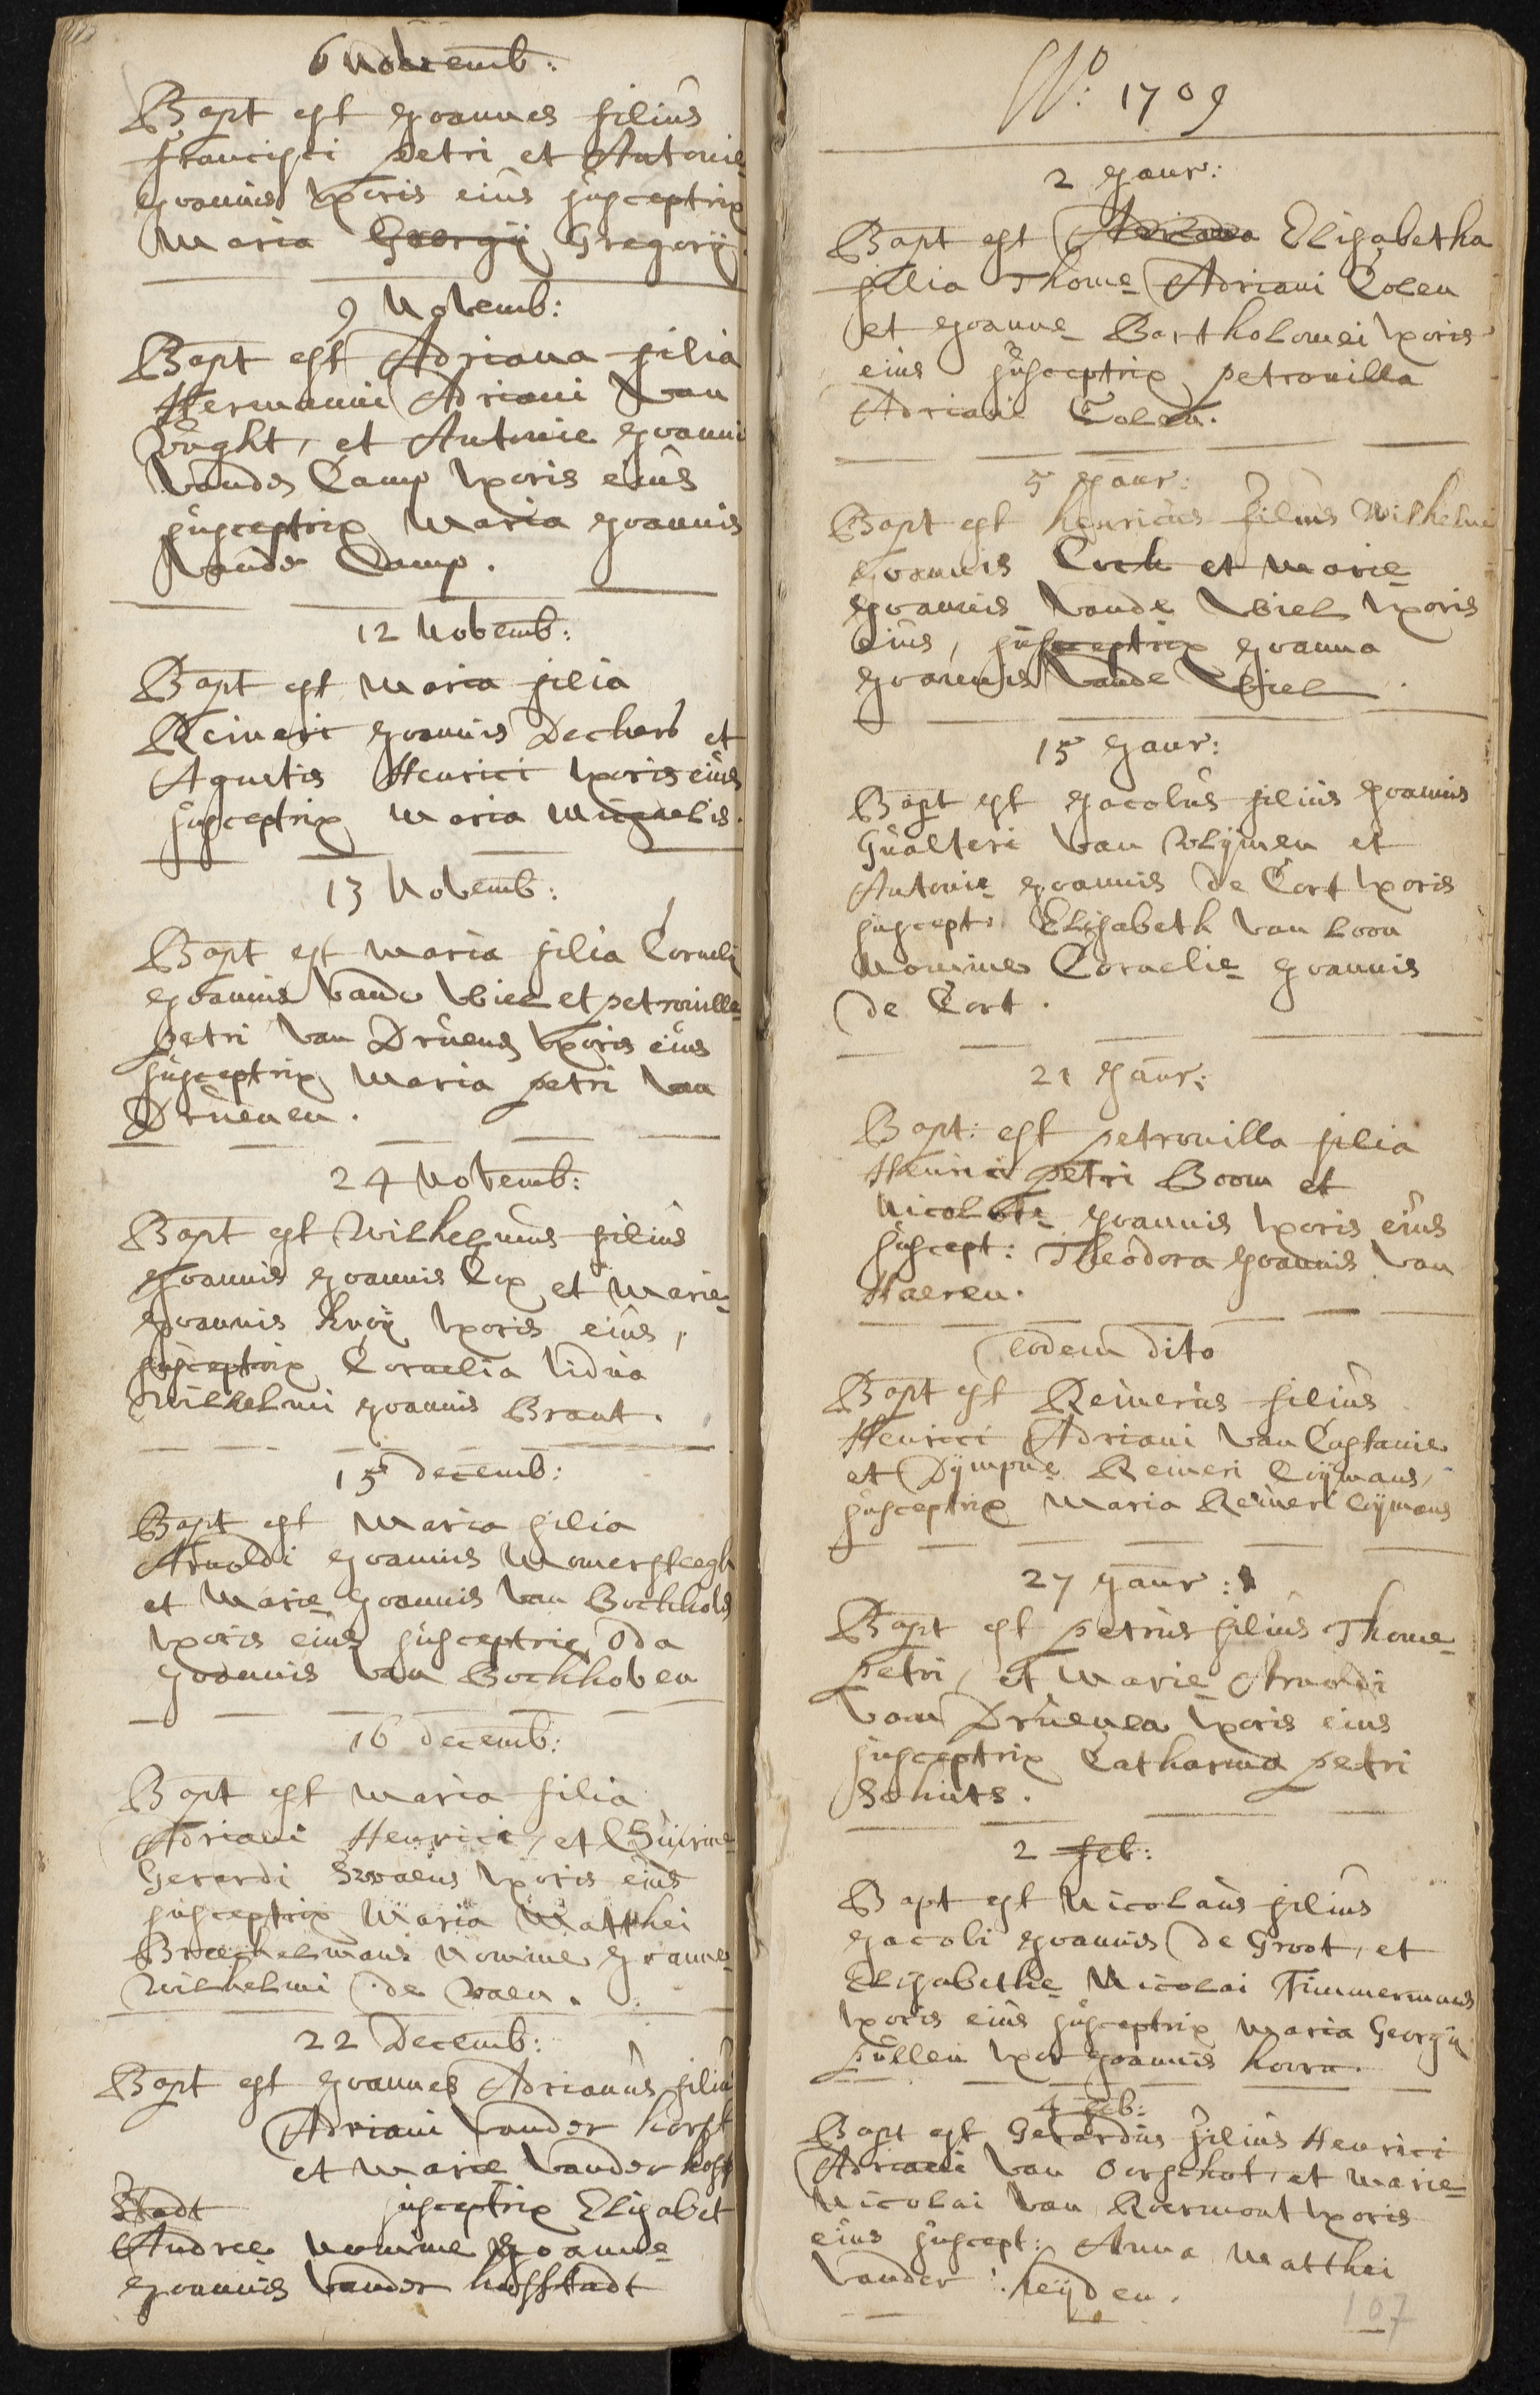 6 Novemb:
Bapt est Joannes filius
francisci petri et Antonie
Joannis uxoris eius susceptrix
Maria Georgij Gregorij
9 Novemb:
Bapt est Adriana filia
Hermanni Adriani van
vught, et Antonie Joannis
vande Camp uxoris eius
susceptrix Maria Joannis
vande Camp.
12 Novemb:
Bapt est Maria filia
Reineri Joannis Deckers et
Agnetis Henrici uxoris eius
susceptrix Maria Migaelis.
13 Novemb:
Bapt est Maria filia Cornelij
Joannis vande Wiel et petronille
petri van Druenen uxoris eius
susceptrix Maria petri van
Druenen.
24 Novemb:
Bapt est Wilhelmus filius
Joannis Joannis Cox et Marie
Joannis knoij uxoris eius,
susceptrix Cornelia vidua
Wilhelmi Joannis Brant.
15 decemb:
Bapt est Maria filia
Arnoldi Joannis Momersteegh
et Marie Joannis van Bockhoven
uxoris eius susceptrix Oda
Joannis van Bockhoven
16 decemb:
Bapt est Maria filia
Adriani Henrici, et Quirine
Gerardi Swaens uxoris eius
susceptrix Maria Matthei
Breechelmans nomine Joanne
Wilhelmi de vaen.
22 Decemb:
Bapt est Joannes Adrianus filius
Adriani vander horst
et Marie vander hoff
Stadt susceptrix Elisabet
Andree nomine Joanne
Joannis vander hoffstadt
Ao: 1709
2 Janr:
Bapt est Adriana Elisabetha
filia Thome Adriani Colen
et Joanne Bartholomei uxoris
eius susceptrix petronilla
Adriani Colen.
5 Janr:
Bapt est henricus filius Wilhelmi
Joannis Cock et Marie
Joannis vande Wiel uxoris
eius, susceptrix Joanna
Joannis vande Wiel.
15 Janr:
Bapt est Jacobus filius Joannis
Gualteri van vlijmen et
Antonie Joannis de Cort uxoris
suscept: Elisabeth van Loon
nomine Cornelie Joannis
de Cort.
21 Janr:
Bapt: est petronilla filia
Henrici petri Boom et
Nicolete Joannis uxoris eius
suscept: Theodora Joannis van
Haeren.
Eodem dito
Bapt est Reinerus filius
Henrici Adriani van Castanie
et Dijmpne Reineri Cijmans,
susceptrix Maria Reineri Cijmans
27 Janr:
Bapt est petrus filius Thome
petri, et Marie Arnoldi
van Druenen uxoris eius
susceptrix Catharina petri
Schuts.
2 feb:
Bapt est Nicolaus filius
Jacobi Joannis de Groot, et
Elisabethe Nicolai Timmermans
uxoris eius susceptrix Maria Georgij
pullen uxor Joannis hoorn.
4 feb:
Bapt est Gerardus filius Henrici
Adriani van Oorschot, et Marie
Nicolai van Roermont uxoris
eius suscept: Anna Matthei
vander heijden.
107